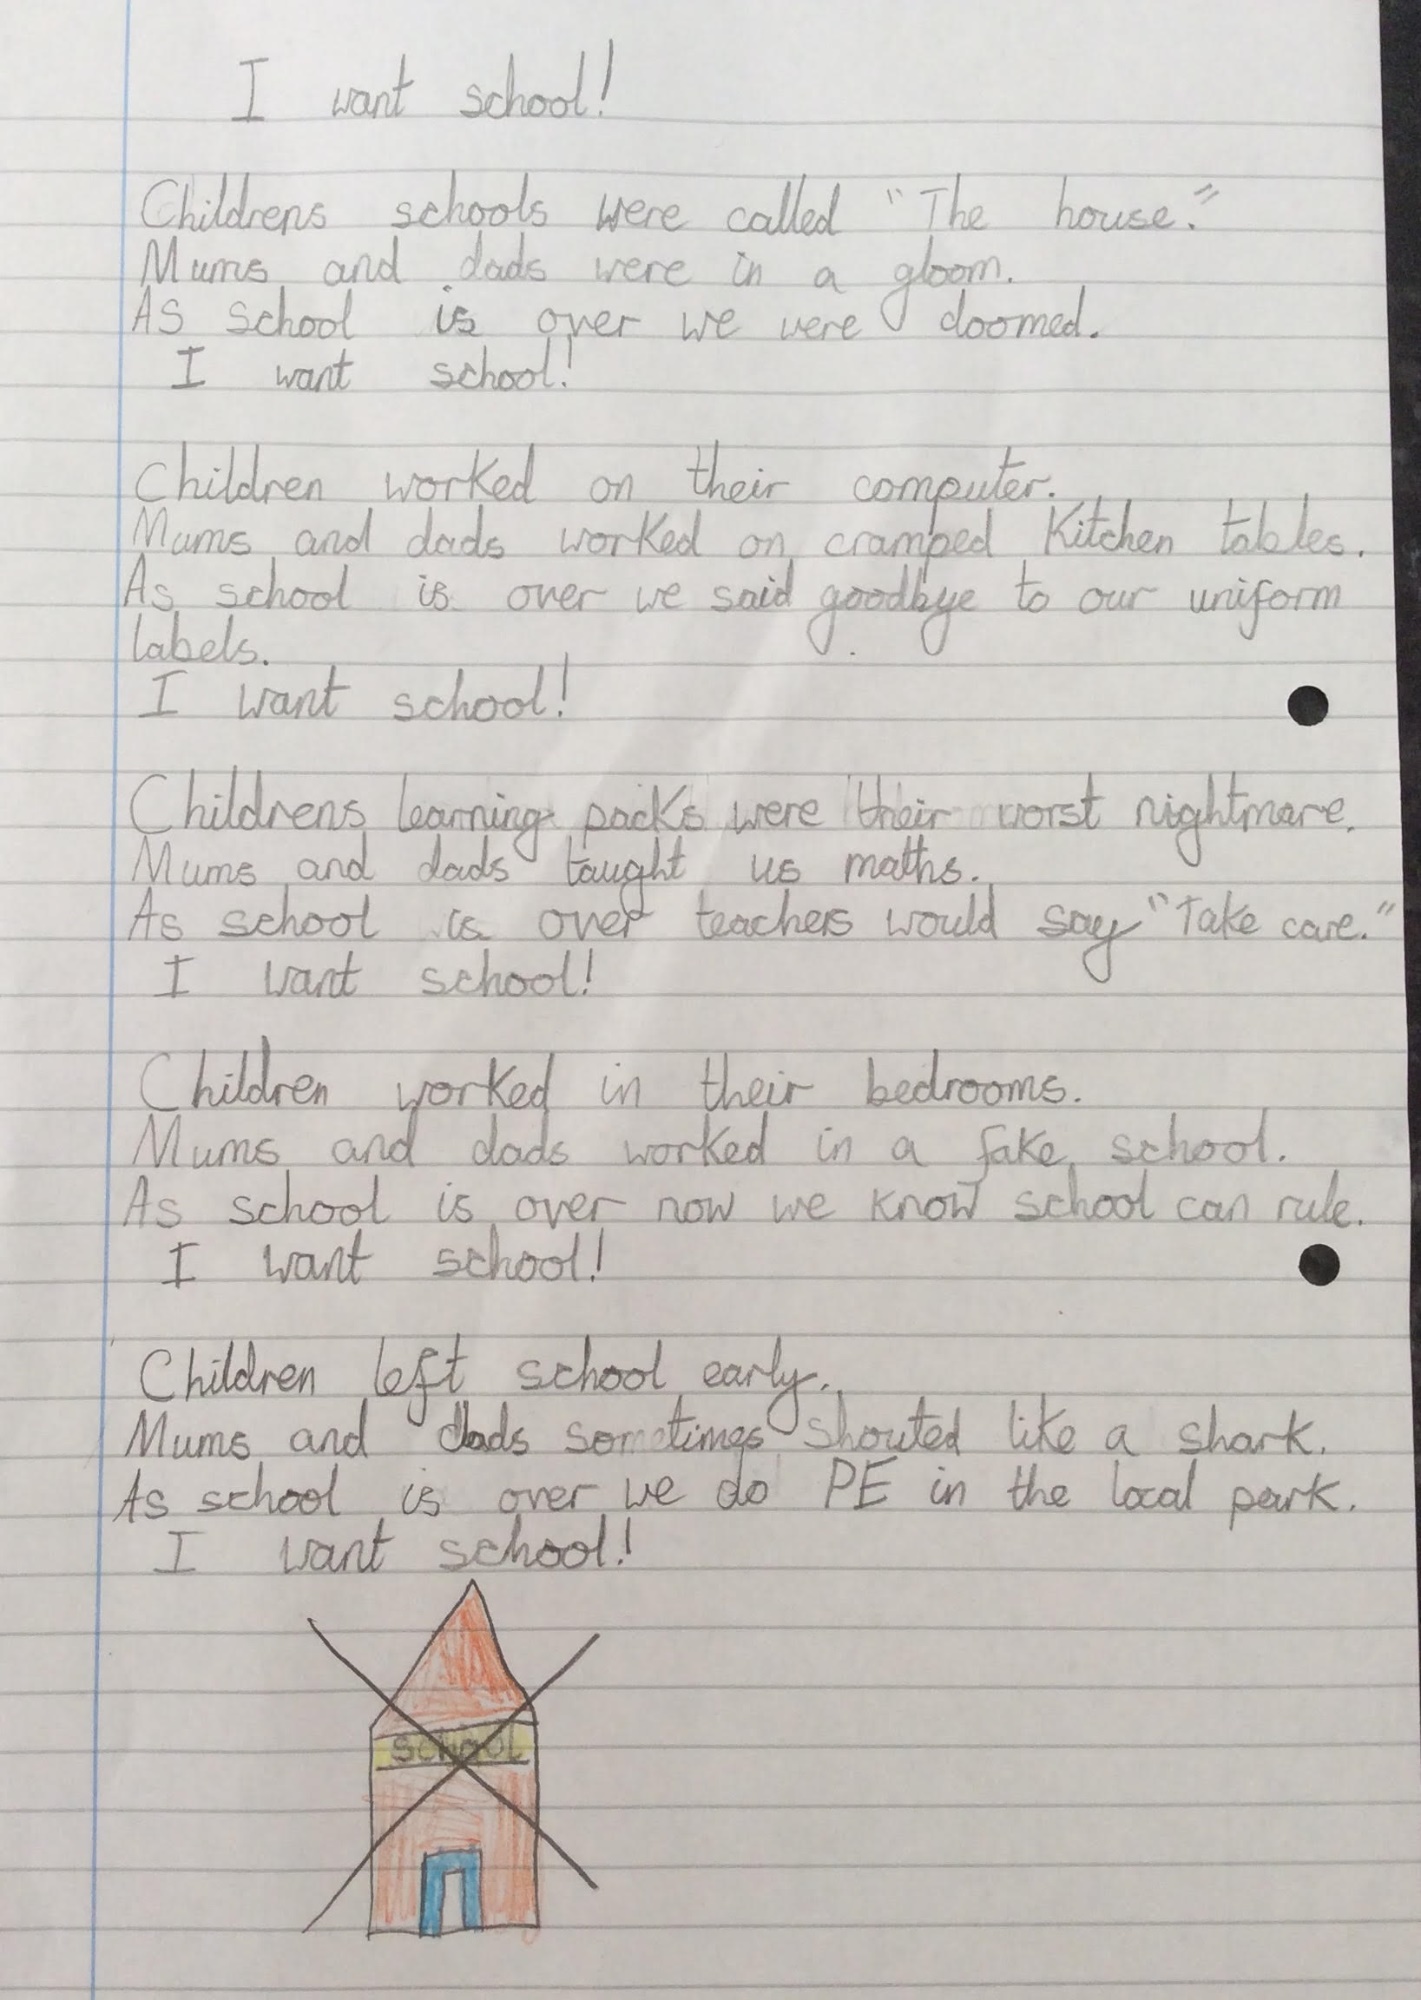 I want school!
Childrens schools were called "The house."
Mums and dads were in a gloom.
As school is over we were doomed.
I want school!
Children worked on their computer.
Mums and dads worked on cramped Kitchen tables.
As school is over we said goodbye to our uniform
labels.
I want school!
Childrens learning packs were their worst nightmare.
Mums and dads taught us maths.
As school is over teachers would say "Take care."
I want school!
Children worked in their bedrooms.
Mums and dads worked in a fake school.
As school is over now we know school can rule.
I want school!
Children left school early.
Mums and dads sometimes shouted like a shark.
As school is over we do PE in the local park.
I want school!
School